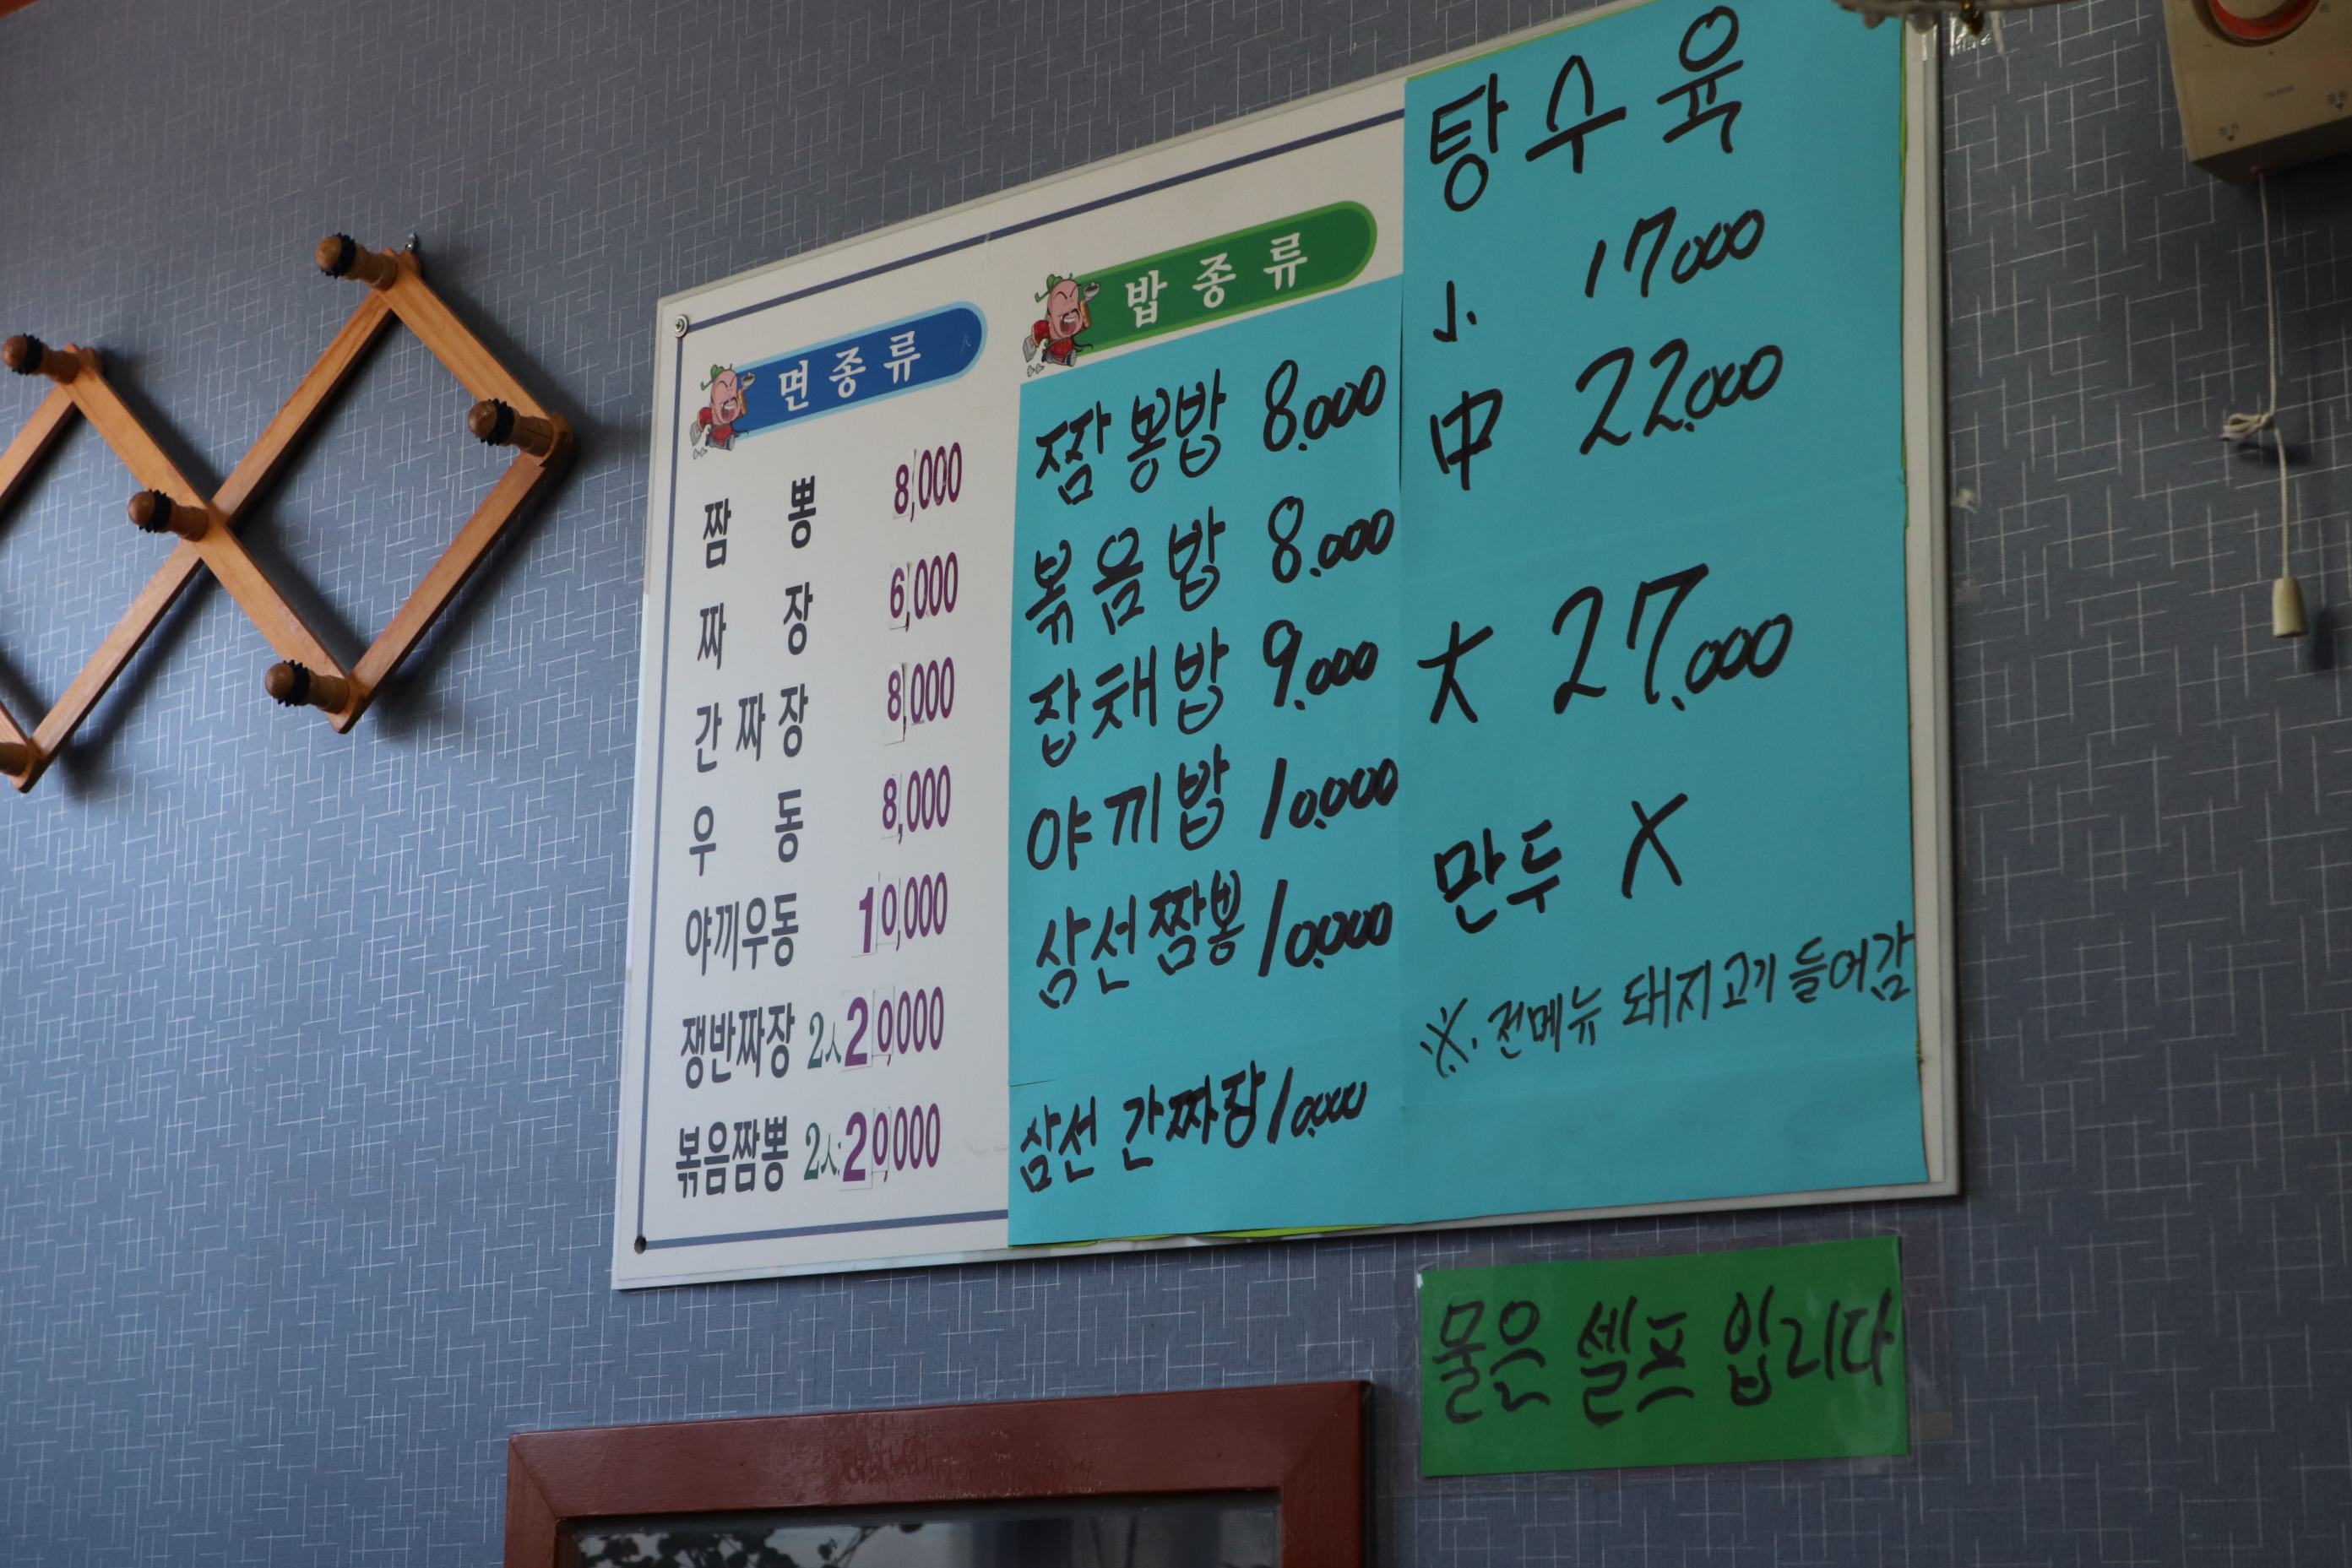 면종류
짬뽕 8,000
짜장 6,000
간짜장 8,000
우동 8,000
야끼우동 10,000
쟁반짜장 2人 20,000
볶음짬뽕 2人 20,000
밥종류
짬뽕밥 8.000
볶음밥 8.000
잡채밥 9.000
야끼밥 10.000
삼선짬뽕 10.000
삼선 간짜장 10.000
탕수육
小 17.000
中 22.000
大 27.000
만두 X
※. 전메뉴 돼지고기 들어감
물은 셀프 입니다